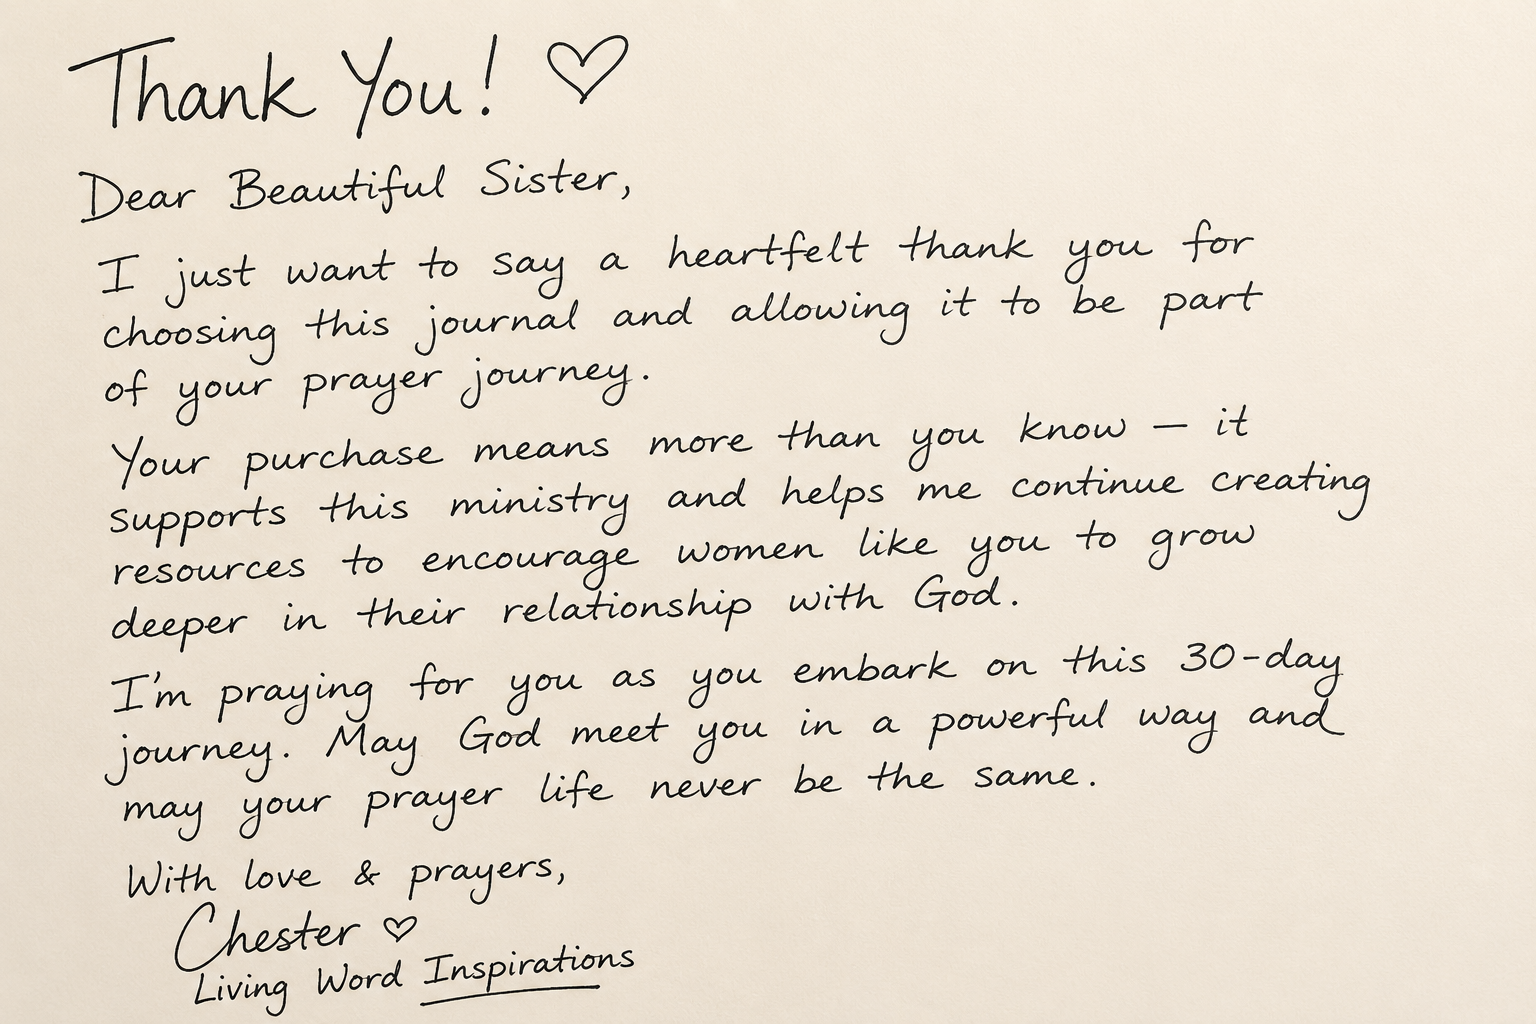 Thank You! ♡
Dear Beautiful Sister,
I just want to say a heartfelt thank you for
choosing this journal and allowing it to be part
of your prayer journey.
Your purchase means more than you know — it
supports this ministry and helps me continue creating
resources to encourage women like you to grow
deeper in their relationship with God.
I'm praying for you as you embark on this 30-day
journey. May God meet you in a powerful way and
may your prayer life never be the same.
With love & prayers,
Chester ♡
Living Word Inspirations